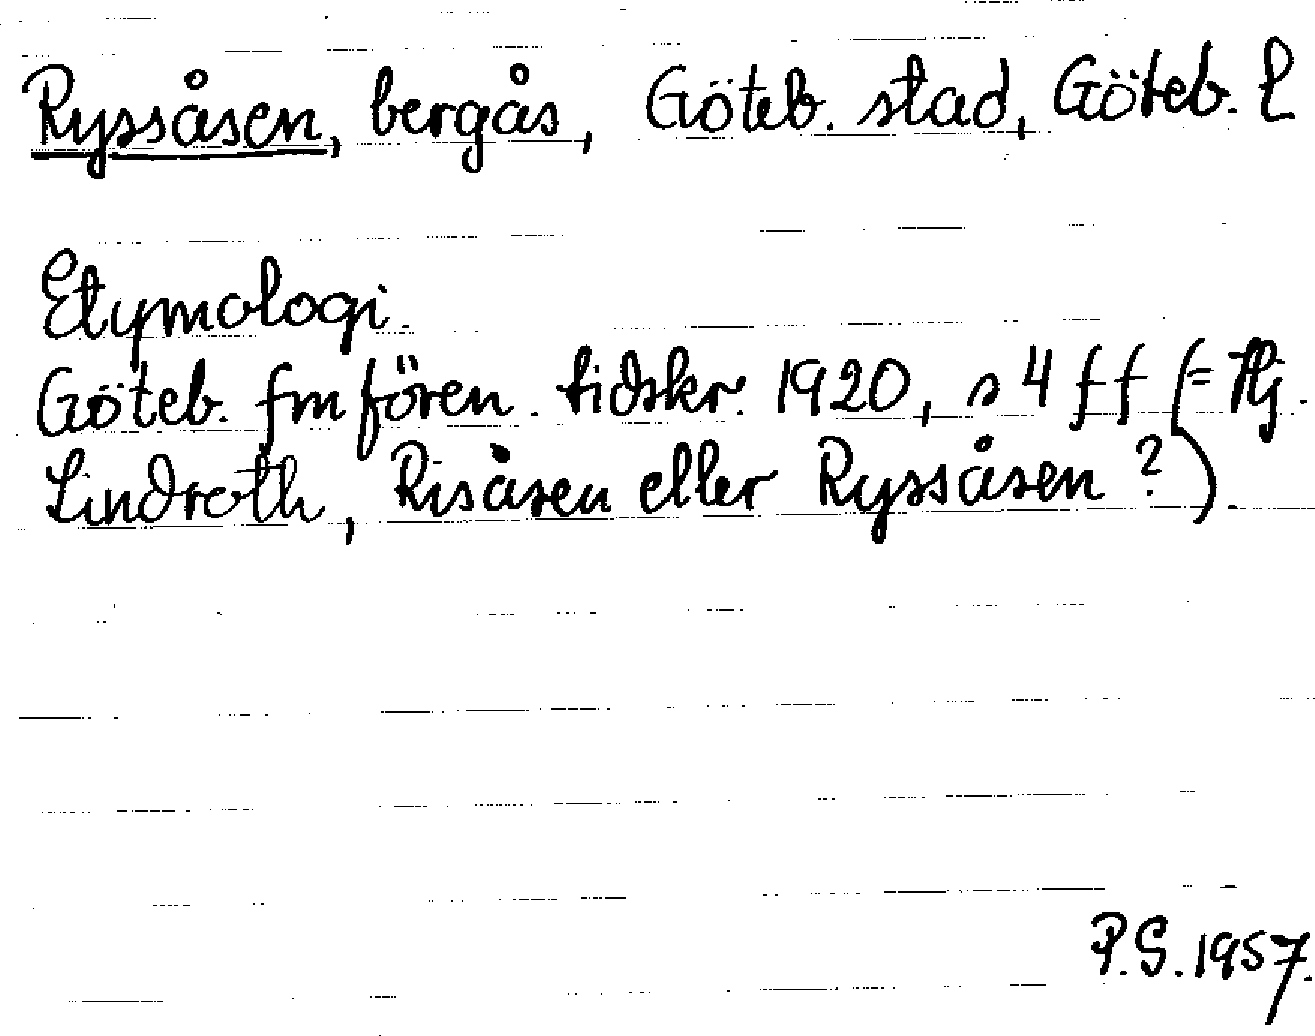 Ryssåsen, bergås, Göteb. stad, Göteb. l
Etymologi.
Göteb. fmfören. tidskr. 1920, s 4 ff (= Hj.
Lindroth, Risåsen eller Ryssåsen?).
P.S. 1957.